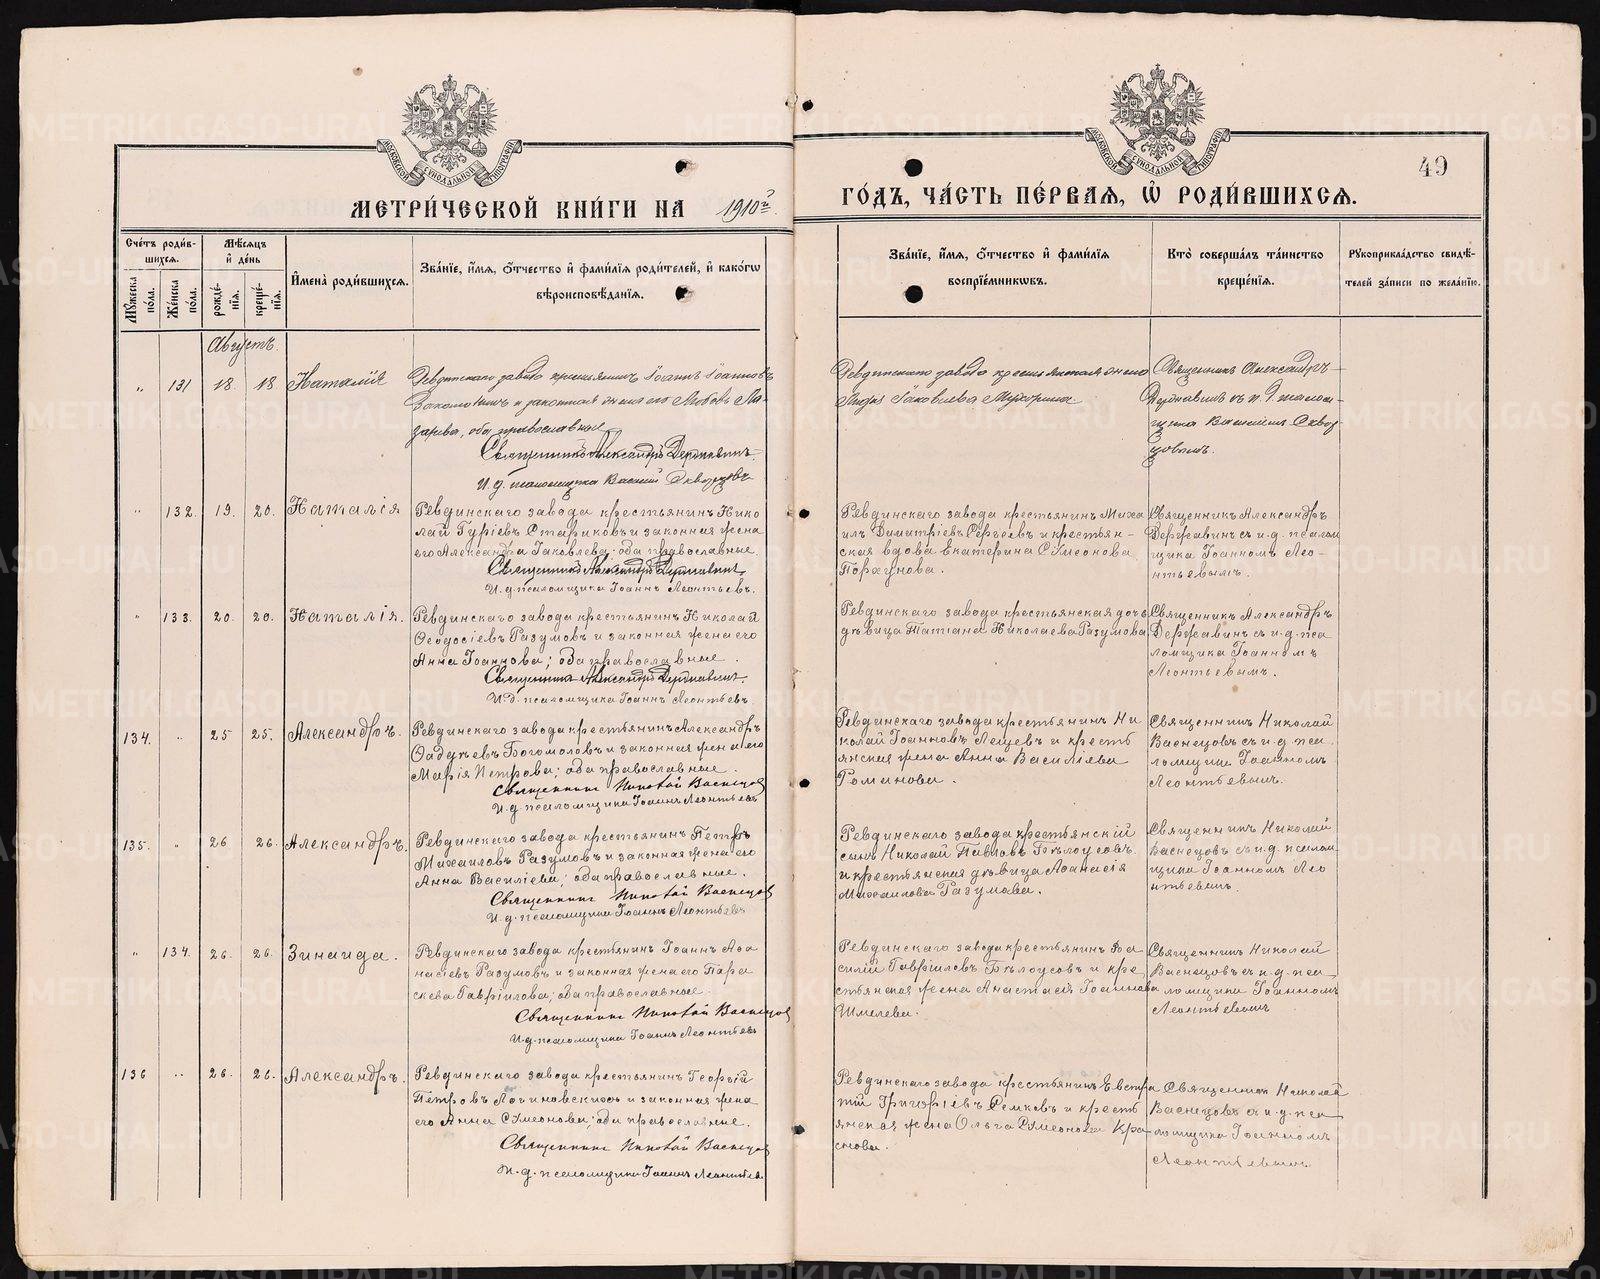 49
МЕТРИ́ЧЕСКОЙ КНИ́ГИ НА 1910й ГО́ДЪ, ЧА́СТЬ ПЕ́РВАЯ, Ѡ҆ РОДИ́ВШИХСЯ.
МОСКОВСКОЙ СѴНОДАЛЬНОЙ ТИПОГРАФІИ
МОСКОВСКОЙ СѴНОДАЛЬНОЙ ТИПОГРАФІИ
Сче́тъ роди́вшихся.
Мꙋ́жеска по́ла.
Же́нска по́ла.
Мѣ́сяцъ и҆ де́нь
рожде́нїя.
креще́нїя.
И҆мена̀ роди́вшихся.
Зва́нїе, и҆́мя, ѻ҆́тчество и҆ фами́лїя роди́телей, и҆ како́гѡ
вѣроисповѣ́данїя.
Зва́нїе, и҆́мя, ѻ҆́тчество и҆ фами́лїя
воспрїе́мникѡвъ.
Кто̀ соверша́лъ та́инство
креще́нїя.
Рꙋкоприкла́дство свидѣ́-
телей за́писи по жела́нїю.
Августъ.
" 131 18 18 Наталія
Ревдинскаго завода крестьянинъ Іоаннъ Іоанновъ
и законная жена его Любовь Ла-
зарева, оба православные
Священникъ Александръ Державинъ
И. д. псаломщика Василій Скворцовъ
Ревдинскаго завода крестьянская жена
Лидія Іаковлева Мухорина
Священникъ Александръ
Державинъ съ и. д. псалом-
щика Василіемъ Сквор-
цовымъ.
" 132. 19. 20. Наталія
Ревдинскаго завода крестьянинъ Нико
лай Гуріевъ Стариковъ и законная жена
его Александра Іаковлева; оба православные.
Священникъ Александръ Державинъ
И. д. псаломщика Іоаннъ Леонтьевъ.
Ревдинскаго завода крестьянинъ Миха
илъ Димитріевъ Сергеевъ и крестьян-
ская вдова Екатерина Сѵмеонова
Порхунова.
Священникъ Александръ
Державинъ съ и. д. псалом
щика Іоанномъ Леон-
тьевымъ.
" 133. 20. 20. Наталія.
Ревдинскаго завода крестьянинъ Николай
Ѳеодосіевъ Разумовъ и законная жена его
Анна Іоаннова; оба православные.
Священникъ Александръ Державинъ.
И. д. псаломщика Іоаннъ Леонтьевъ
Ревдинскаго завода крестьянская дочь
дѣвица Татіана Николаева Разумова
Священникъ Александръ
Державинъ съ и. д. пса
ломщика Іоанномъ
Леонтьевымъ.
134. " 25 25. Александръ.
Ревдинскаго завода крестьянинъ Александръ
Богомоловъ и законная жена его
Марія Петрова; оба православные.
Священникъ Николай Васнецов
И. д. псаломщика Іоаннъ Леонтьевъ
Ревдинскаго завода крестьянинъ Ни
колай Іоанновъ Лещевъ и кресть
янская жена Анна Василіева
Романова.
Священникъ Николай
Васнецовъ съ и. д. пса
ломщика Іоанномъ
Леонтьевымъ.
135. " 26 26. Александръ.
Ревдинскаго завода крестьянинъ Петръ
Михаиловъ Разумовъ и законная жена его
Анна Василіева; оба православные.
Священникъ Николай Васнецов
И. д. псаломщика Іоаннъ Леонтьевъ
Ревдинскаго завода крестьянскій
сынъ Николай Павловъ Бѣлоусовъ
и крестьянская дѣвица Аѳанасія
Михаилова Разумова.
Священникъ Николай
Васнецовъ съ и. д. псалом
щика Іоанномъ Лео
нтьевымъ.
" 134. 26. 26. Зинаида.
Ревдинскаго завода крестьянинъ Іоаннъ Аѳа
насіевъ Разумовъ и законная жена его Пара
скева Гавріилова; оба православные.
Священникъ Николай Васнецов
И. д. псаломщика Іоаннъ Леонтьевъ
Ревдинскаго завода крестьянинъ Ва
силій Гавріиловъ Бѣлоусовъ и кре
стьянская жена Анастасія Іоаннова
Шмелева.
Священникъ Николай
Васнецовъ съ и. д. пса
ломщика Іоанномъ
Леонтьевымъ
136 " 26. 26. Александръ.
Ревдинскаго завода крестьянинъ Георгій
Петровъ Логиновскихъ и законная жена
его Анна Сѵмеонова; оба православные.
Священникъ Николай Васнецов
И. д. псаломщика Іоаннъ Леонтьев
Ревдинскаго завода крестьянинъ Евстра
тій Григоріевъ Семковъ и кресть
янская жена Ольга Сѵмеонова Кра
снова.
Священникъ Николай
Васнецовъ съ и. д. пса
ломщика Іоанномъ
Леонтьевымъ.
METRIKI.GASO-URAL.RU